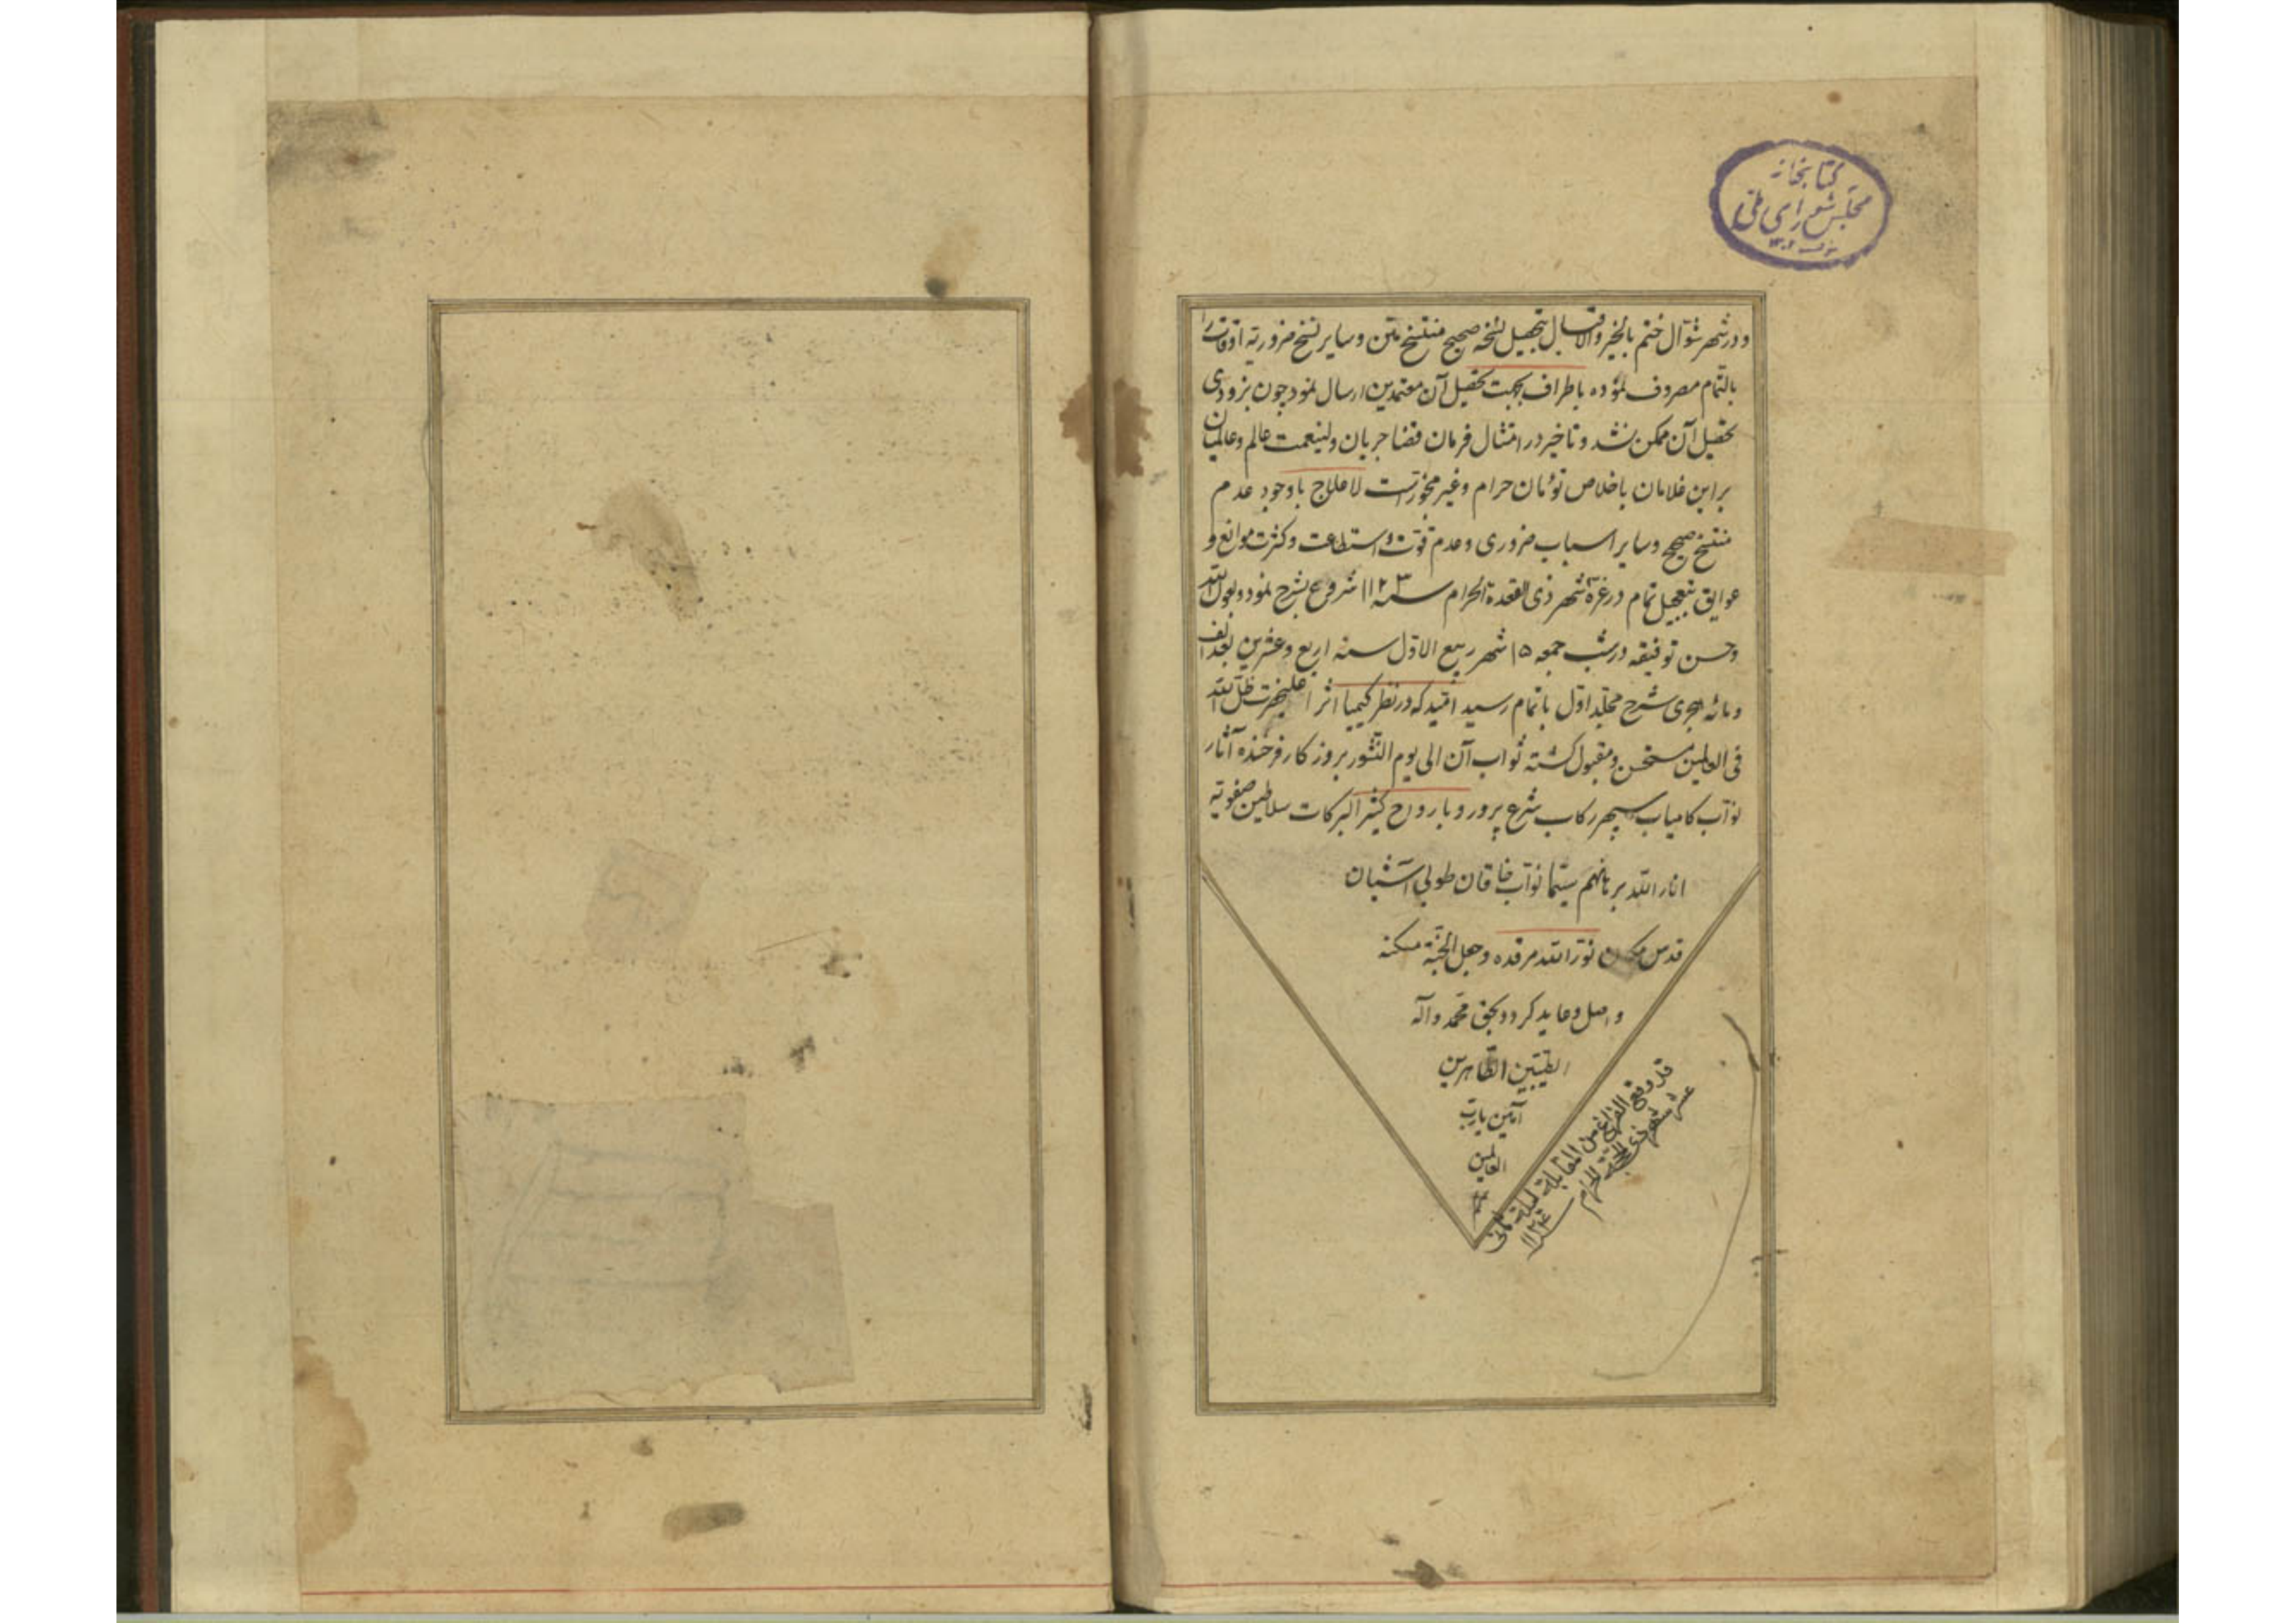 كتابخانه
مجلس شورای ملی
۱۳۰۲
و در شهر شوّال ختم بالخیر والاقبال بتحصیل نسخه صحیح منتسخ متن و سایر نسخ ضروریه اوقات را
بالتّمام مصروف نموده باطراف بجهت تحصیل آن معتمدین ارسال نمود چون بزودی
تحصیل آن ممکن نشد و تاخیر در امتثال فرمان قضا جریان ولینعمت عالم و عالمیان
بر این غلامان باخلاص توءمان حرام و غیر مجوّزست لاعلاج با وجود عدم
منتسخ صحیح و سایر اسباب ضروری و عدم قوّت و استطاعت و کثرت موانع و
عوایق بتعجیل تمام در غرّه شهر ذی القعدة الحرام سنه ۱۱۲۳ شروع بشرح نمود و بعون الله
و حسن توفیقه در شب جمعه ۱۵ شهر ربیع الاوّل سنه اربع و عشرین بعد الف
و مائه هجری شرح مجلّد اوّل باتمام رسید امّید که در نظر کیمیا اثر اعلیحضرت ظلّ الله
فی العالمین مستحسن و مقبول گشته ثواب آن الی یوم النّشور بروزکار فرخنده آثار
نوّاب کامیاب سپهر رکاب شرع پرور و بارواح کثیر البرکات سلاطین صفویّه
انار الله برهانهم سیّما نوّاب خاقان طوبی آشیان
قدس مکان نوّر الله مرقده و جعل الجنّة مسکنه
واصل و عاید کردد بحقّ محمّد و آله
الطّیّبین الطّاهرین
آمین یا ربّ
العالمین
قد وقع الفراغ من المقابلة لیلة ثانی
عشر شهر ذی الحجّة الحرام سنه ۱۱۲۴